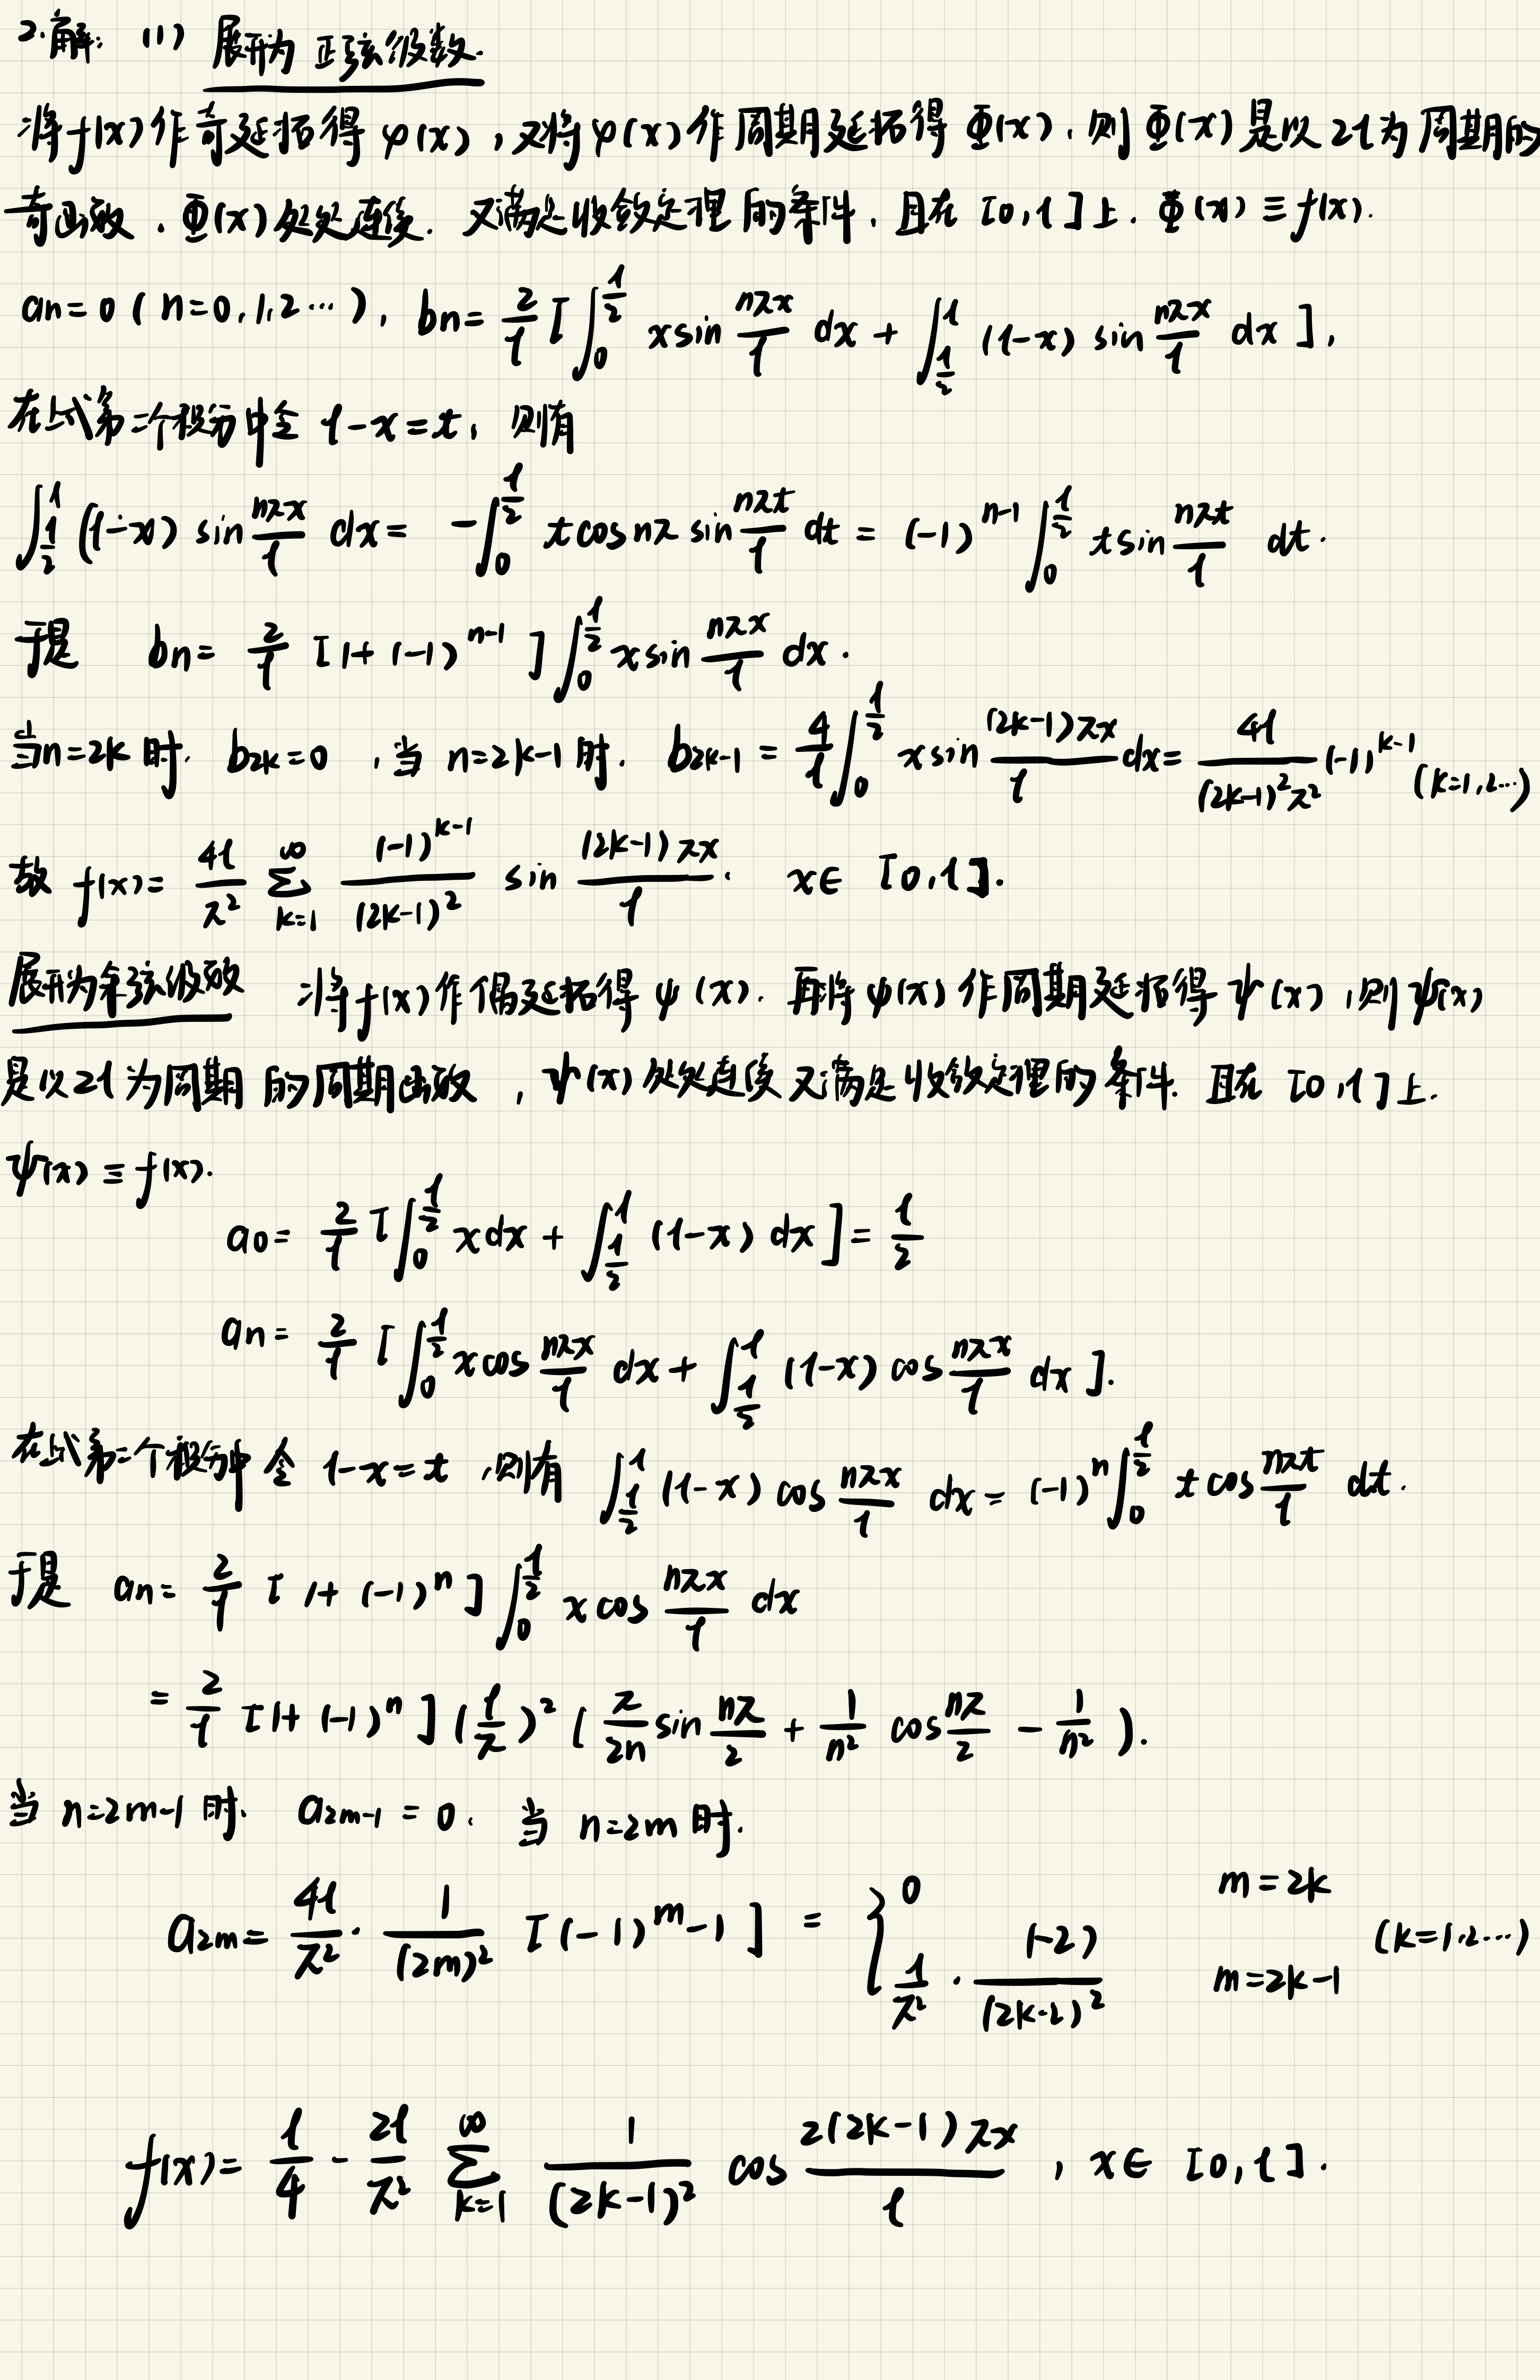 2.解: (1) 展开为正弦级数.
将f(x)作奇延拓得 φ(x),又将φ(x)作周期延拓得 Φ(x),则 Φ(x)是以2l为周期的
奇函数.Φ(x)处处连续.又满足收敛定理的条件,且在[0,l]上.Φ(x)≡f(x).
an=0 (n=0,1,2…), bn= 2/l [∫_0^{l/2} x sin nπx/l dx + ∫_{l/2}^l (l-x) sin nπx/l dx],
在上式第二个积分中令 l-x=t, 则有
∫_{l/2}^l (l-x) sin nπx/l dx = -∫_0^{l/2} t cos nπ sin nπt/l dt = (-1)^{n-1} ∫_0^{l/2} t sin nπt/l dt.
于是 bn= 2/l [1+(-1)^{n-1}] ∫_0^{l/2} x sin nπx/l dx.
当n=2k时. b2k=0 ,当 n=2k-1时. b2k-1 = 4/l ∫_0^{l/2} x sin (2k-1)πx/l dx = 4l/((2k-1)²π²) (-1)^{k-1} (k=1,2…)
故 f(x)= 4l/π² ∑_{k=1}^∞ (-1)^{k-1}/(2k-1)² sin (2k-1)πx/l. x∈[0,l].
展开为余弦级数 将f(x)作偶延拓得 ψ(x).再将ψ(x)作周期延拓得Ψ(x),则Ψ(x)
是以2l为周期的周期函数,Ψ(x)处处连续又满足收敛定理的条件.且在[0,l]上.
Ψ(x)≡f(x).
a0= 2/l [∫_0^{l/2} x dx + ∫_{l/2}^l (l-x) dx] = l/2
an= 2/l [∫_0^{l/2} x cos nπx/l dx + ∫_{l/2}^l (l-x) cos nπx/l dx].
在上式第二个积分中令 l-x=t,则有 ∫_{l/2}^l (l-x) cos nπx/l dx = (-1)^n ∫_0^{l/2} t cos nπt/l dt.
于是 an= 2/l [1+(-1)^n] ∫_0^{l/2} x cos nπx/l dx
= 2/l [1+(-1)^n] (l/π)² (π/2n sin nπ/2 + 1/n² cos nπ/2 - 1/n²).
当 n=2m-1时. a2m-1=0. 当 n=2m时.
a2m= 4l/π² · 1/(2m)² [(-1)^m-1] = { 0 m=2k
l/π² · (-2)/(2k-1)² m=2k-1 (k=1,2…)
f(x)= l/4 - 2l/π² ∑_{k=1}^∞ 1/(2k-1)² cos 2(2k-1)πx/l , x∈[0,l].